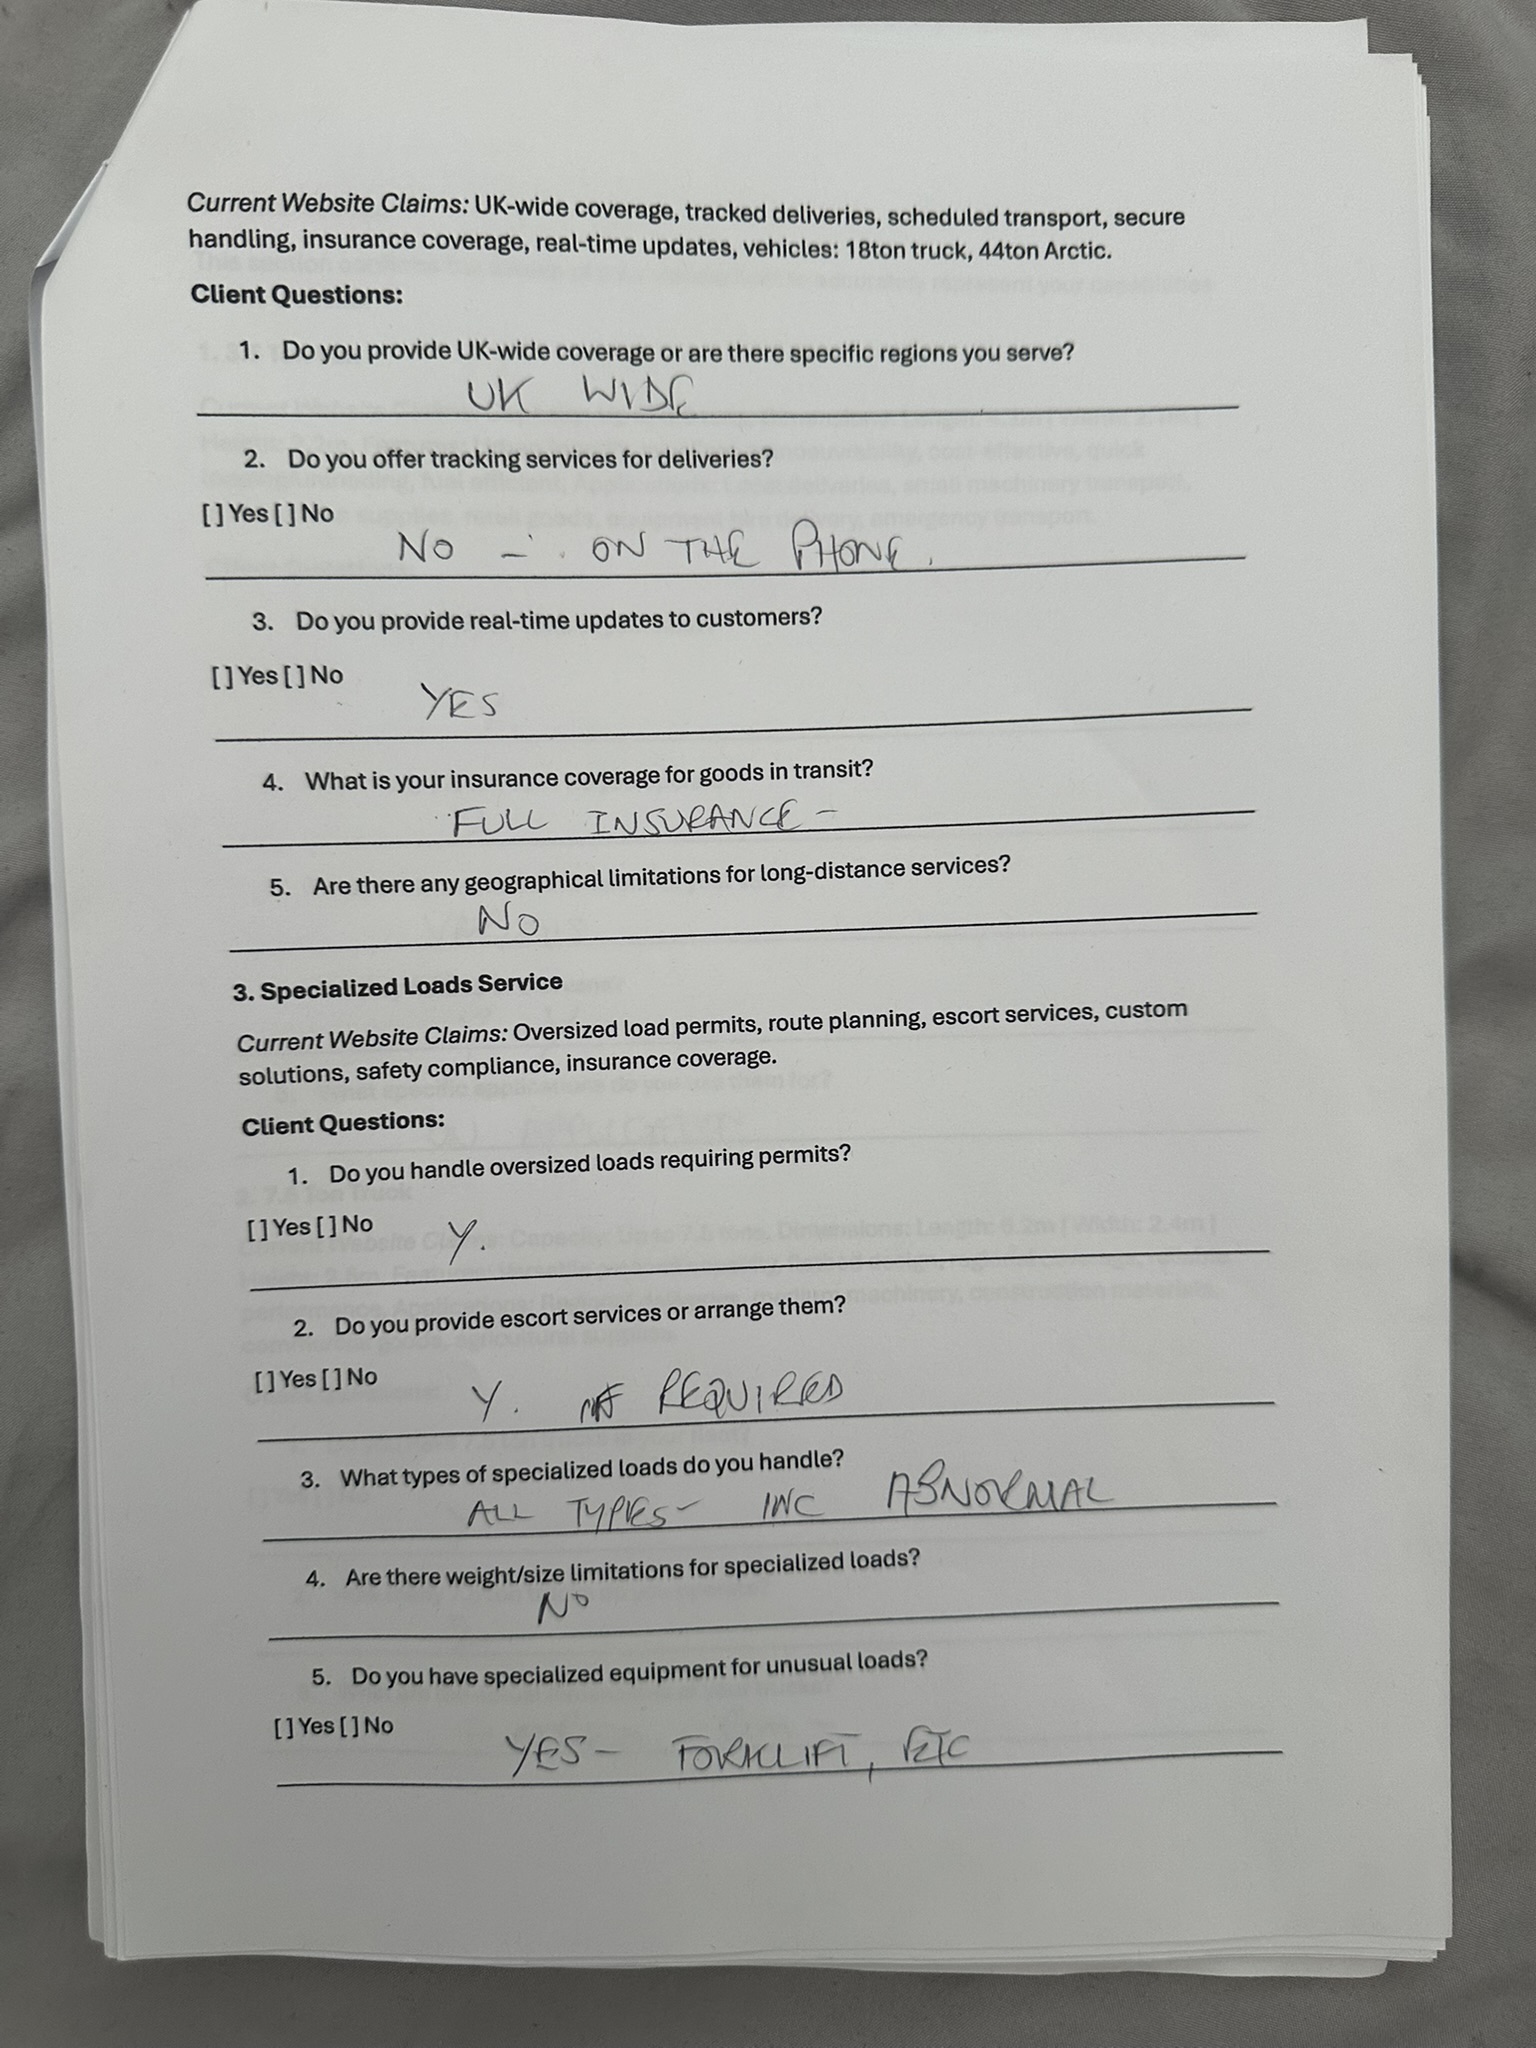 Current Website Claims: UK-wide coverage, tracked deliveries, scheduled transport, secure
handling, insurance coverage, real-time updates, vehicles: 18ton truck, 44ton Arctic.
Client Questions:
1. Do you provide UK-wide coverage or are there specific regions you serve?
UK WIDE
2. Do you offer tracking services for deliveries?
[ ] Yes [ ] No
NO - ON THE PHONE.
3. Do you provide real-time updates to customers?
[ ] Yes [ ] No
YES
4. What is your insurance coverage for goods in transit?
FULL INSURANCE -
5. Are there any geographical limitations for long-distance services?
NO
3. Specialized Loads Service
Current Website Claims: Oversized load permits, route planning, escort services, custom
solutions, safety compliance, insurance coverage.
Client Questions:
1. Do you handle oversized loads requiring permits?
[ ] Yes [ ] No
Y.
2. Do you provide escort services or arrange them?
[ ] Yes [ ] No
Y. REQUIRED
3. What types of specialized loads do you handle?
ALL TYPES - INC ABNORMAL
4. Are there weight/size limitations for specialized loads?
NO
5. Do you have specialized equipment for unusual loads?
[ ] Yes [ ] No
YES - FORKLIFT, ETC